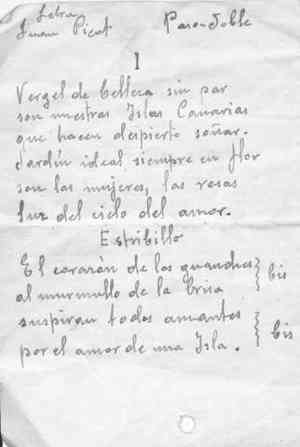 Letra
Juan Picot
Paso-doble
1
Vergel de belleza sin par
son nuestras Islas Canarias
que hacen despierto soñar.
Jardín ideal siempre en flor
son las mujeres, las rosas
luz del cielo del amor.
Estribillo
El corazón de los guanches } bis
al murmullo de la brisa
suspiran todos amantes } bis
por el amor de una Isla.